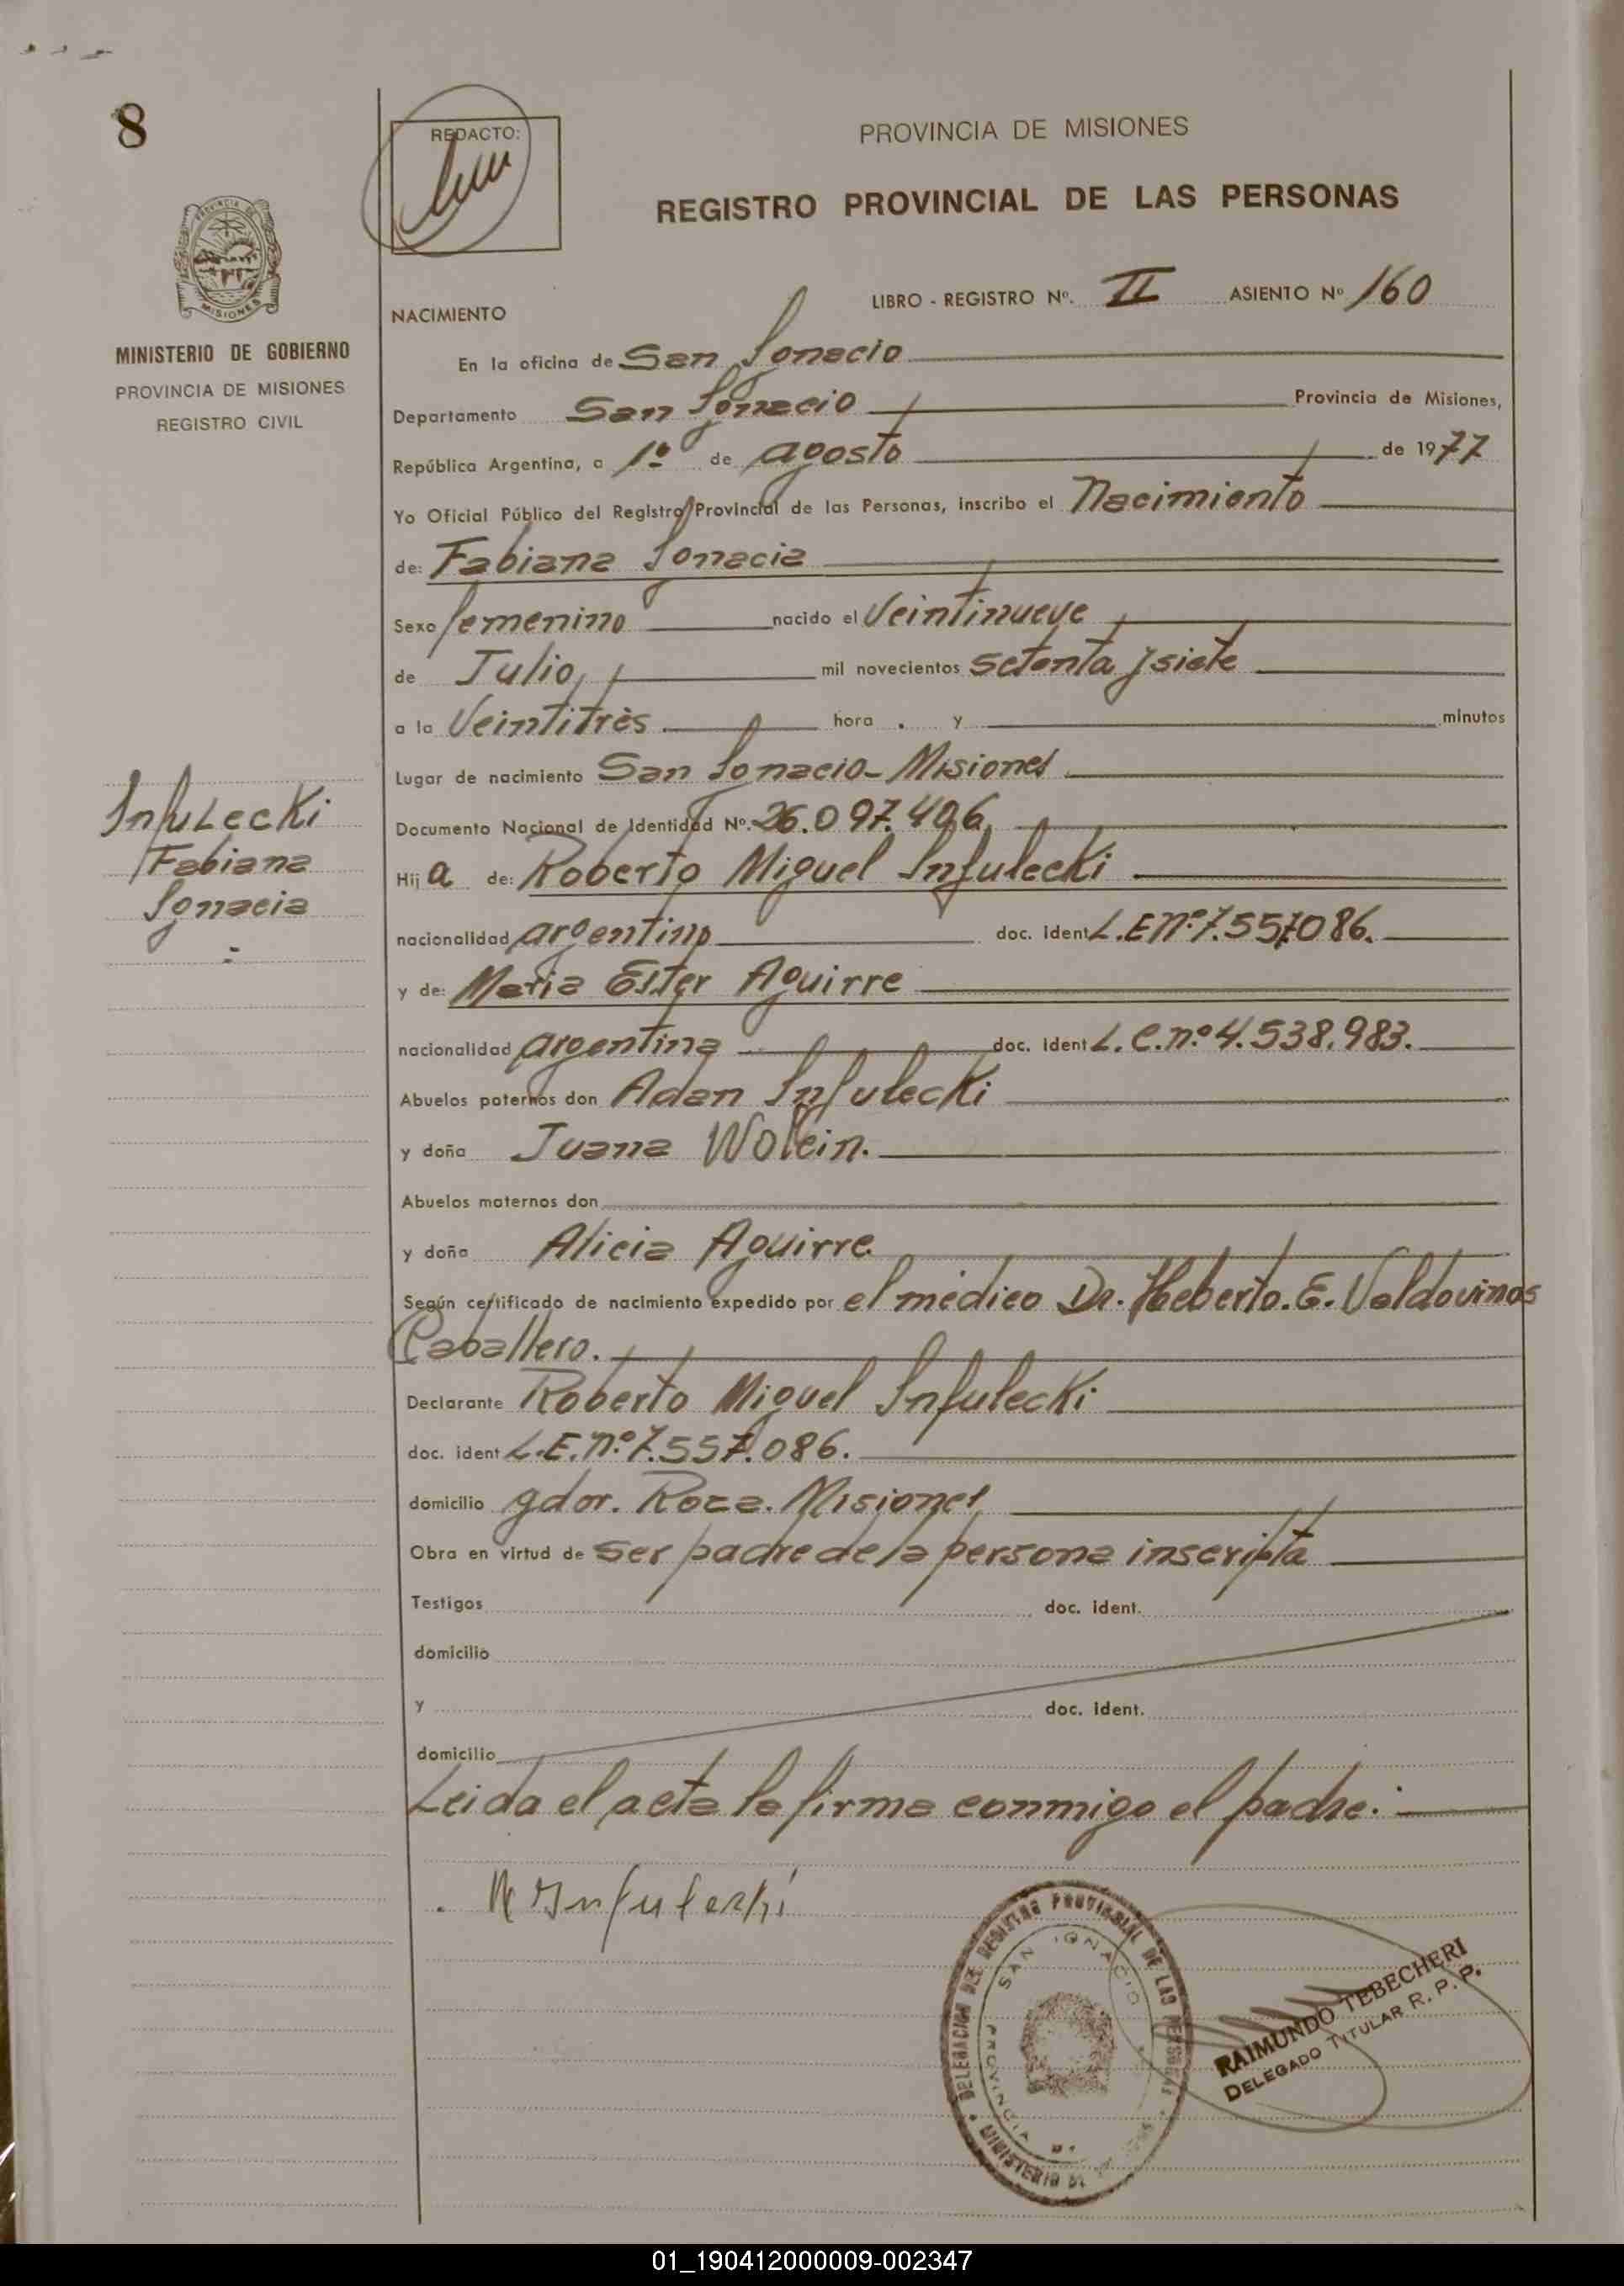 8
REDACTO:
PROVINCIA DE MISIONES
REGISTRO PROVINCIAL DE LAS PERSONAS
PROVINCIA DE
MISIONES
MINISTERIO DE GOBIERNO
PROVINCIA DE MISIONES
REGISTRO CIVIL
LIBRO - REGISTRO Nº. II ASIENTO Nº 160
NACIMIENTO
En la oficina de San Ignacio
Departamento San Ignacio Provincia de Misiones,
República Argentina, a 1º de agosto de 1977
Yo Oficial Público del Registro Provincial de las Personas, inscribo el Nacimiento
de: Fabiana Ignacia
Sexo femenino nacido el Veintinueve
de Julio, mil novecientos setenta y siete
a la Veintitrès hora . y minutos
Lugar de nacimiento San Ignacio - Misiones
Documento Nacional de Identidad Nº. 26.097.406
Infulecki
Fabiana
Ignacia
Hij a de: Roberto Miguel Infulecki
nacionalidad argentino doc. ident L.E nº 7.557.086.
y de: Maria Ester Aguirre
nacionalidad argentina doc. ident L.C. nº 4.538.983.
Abuelos paternos don Adan Infulecki
y doña Juana Wolein.
Abuelos maternos don
y doña Alicia Aguirre
Según certificado de nacimiento expedido por el médico Dr. Heberto. E. Valdovinos
Caballero.
Declarante Roberto Miguel Infulecki
doc. ident L.E. nº 7.557.086.
domicilio gdor. Roca. Misiones
Obra en virtud de ser padre de la persona inscripta
Testigos doc. ident.
domicilio
y doc. ident.
domicilio
Leida el acta la firma conmigo el padre. -
R Infulecki
DELEGACION DEL REGISTRO PROVINCIAL DE LAS PERSONAS
SAN IGNACIO
PROVINCIA
MINISTERIO DE
RAIMUNDO TEBECHERI
DELEGADO TITULAR R. P. P.
01_190412000009-002347